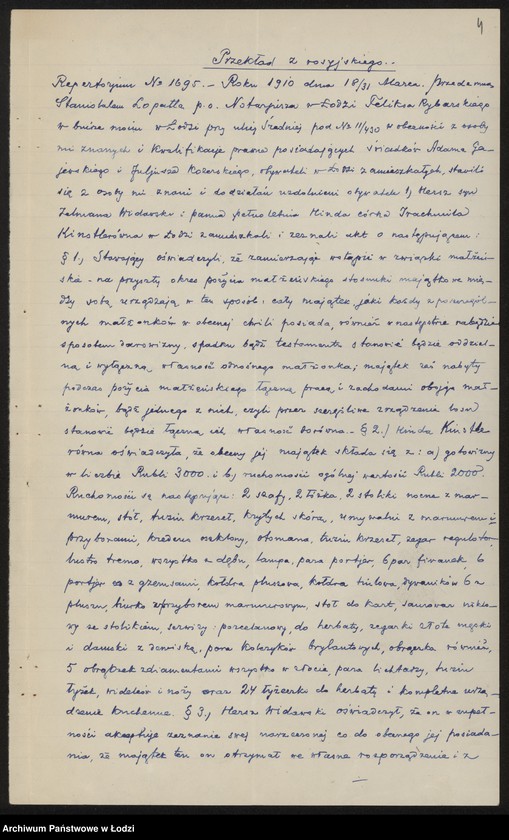 4
Przekład z rosyjskiego.
Repertorjum № 1695. – Roku 1910 dnia 18/31 Marca. Przede mną
Stanisławem Łopatto p.o. Notarjusza w Łodzi Feliksa Rybarskiego
w biurze moim w Łodzi przy ulicy Średniej pod № 11/430 w obecności z osoby
mi znanych i kwalifikacje prawne posiadających świadków Adama Ga-
jewskiego i Juljusza Kozerskiego, obywateli w Łodzi zamieszkałych, stawili
się z osoby mi znani i do działań uzdolnieni obywatele 1) Hersz syn
Zelmana Widawski i panna pełnoletnia Hinda córka Srachmila
Kinstlerówna w Łodzi zamieszkali i zeznali akt o następującem:
§ 1, Stawający oświadczyli, że zamierzając wstąpić w związki małżeń-
skie – na przyszły okres pożycia małżeńskiego stosunki majątkowe mię-
dzy sobą urządzają w ten sposób: cały majątek, jaki każdy z poszczegól-
nych małżonków w obecnej chwili posiada, również w następstwie nabędzie
sposobem darowizny, spadku bądź testamentu stanowić będzie oddziel-
ną i wyłączną własność odnośnego małżonka; majątek zaś nabyty
podczas pożycia małżeńskiego łączną pracą i zachodami obojga mał-
żonków, bądź jednego z nich, czyli przez szczęśliwe zrządzenie losu
stanowić będzie łączną ich własność dorówna. – § 2.) Hinda Kinstle-
równa oświadczyła, że obecny jej majątek składa się z: a) gotowizny
w liczbie Rubli 3000. i b) ruchomości ogólnej wartości Rubli 2000.
Ruchomości są następujące: 2 szafy, 2 łóżka, 2 stoliki nocne z mar-
murem, stół, tuzin krzeseł, krytych skórą, umywalni z marmurem i
przyborami, kredens oszklony, otomana, tuzin krzeseł, zegar regulator,
lustro tremo, wszystko z dębu, lampa, para portjer, 6 par firanek, 6
portjer z gzemsami, kołdra pluszowa, kołdra tiulowa, dywaników 6 z
pluszu, biurko z przyborem marmurowym, stół do kart, samowar nikło-
wy ze stolikiem, serwisy: porcelanowy, do herbaty, zegarki złote męski
i damski z dewiską, para kolczyków brylantowych, obrączka również,
5 obrączek z diamentami wszystko w złocie, para lichtarzy, tuzin
łyżek, widelców i noży oraz 24 łyżeczki do herbaty i kompletne urzą-
dzenie kuchenne. § 3, Hersz Widawski oświadczył, że on w zupeł-
ności akceptuje zeznanie swej narzeczonej co do obecnego jej posiada-
nia, że majątek ten on otrzymał we własne rozporządzenie i z
Archiwum Państwowe w Łodzi